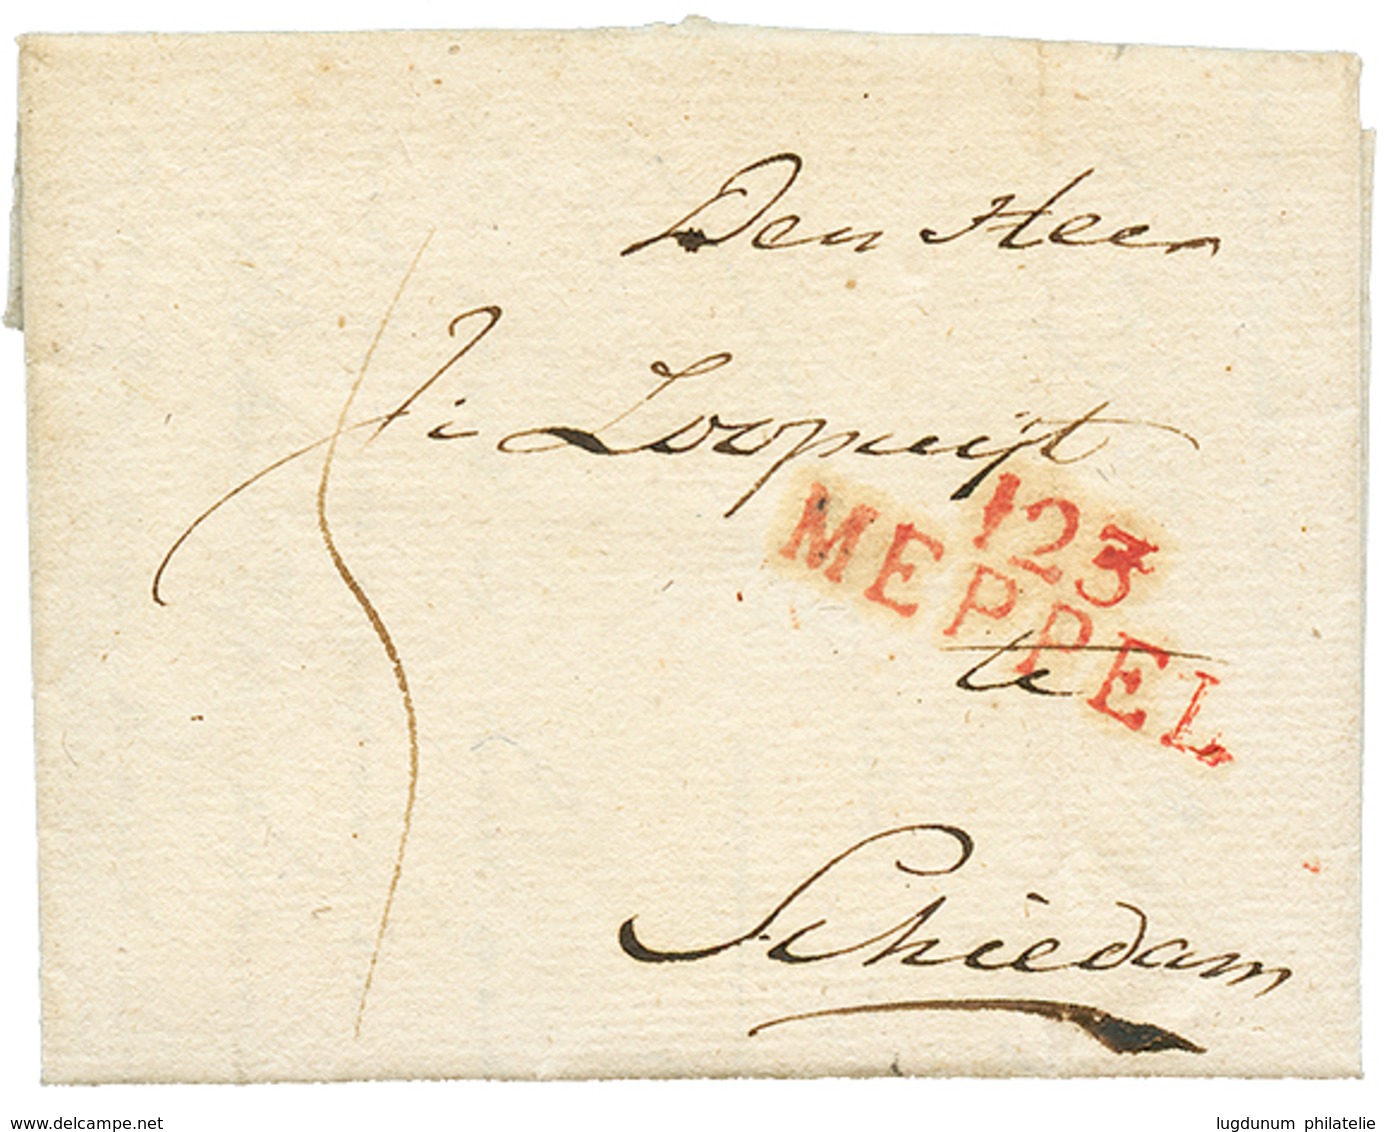 Den Heer
Js Loopuijt
123
MEPPEL
te
Schiedam
delcampe.net
lugdunum philatelie